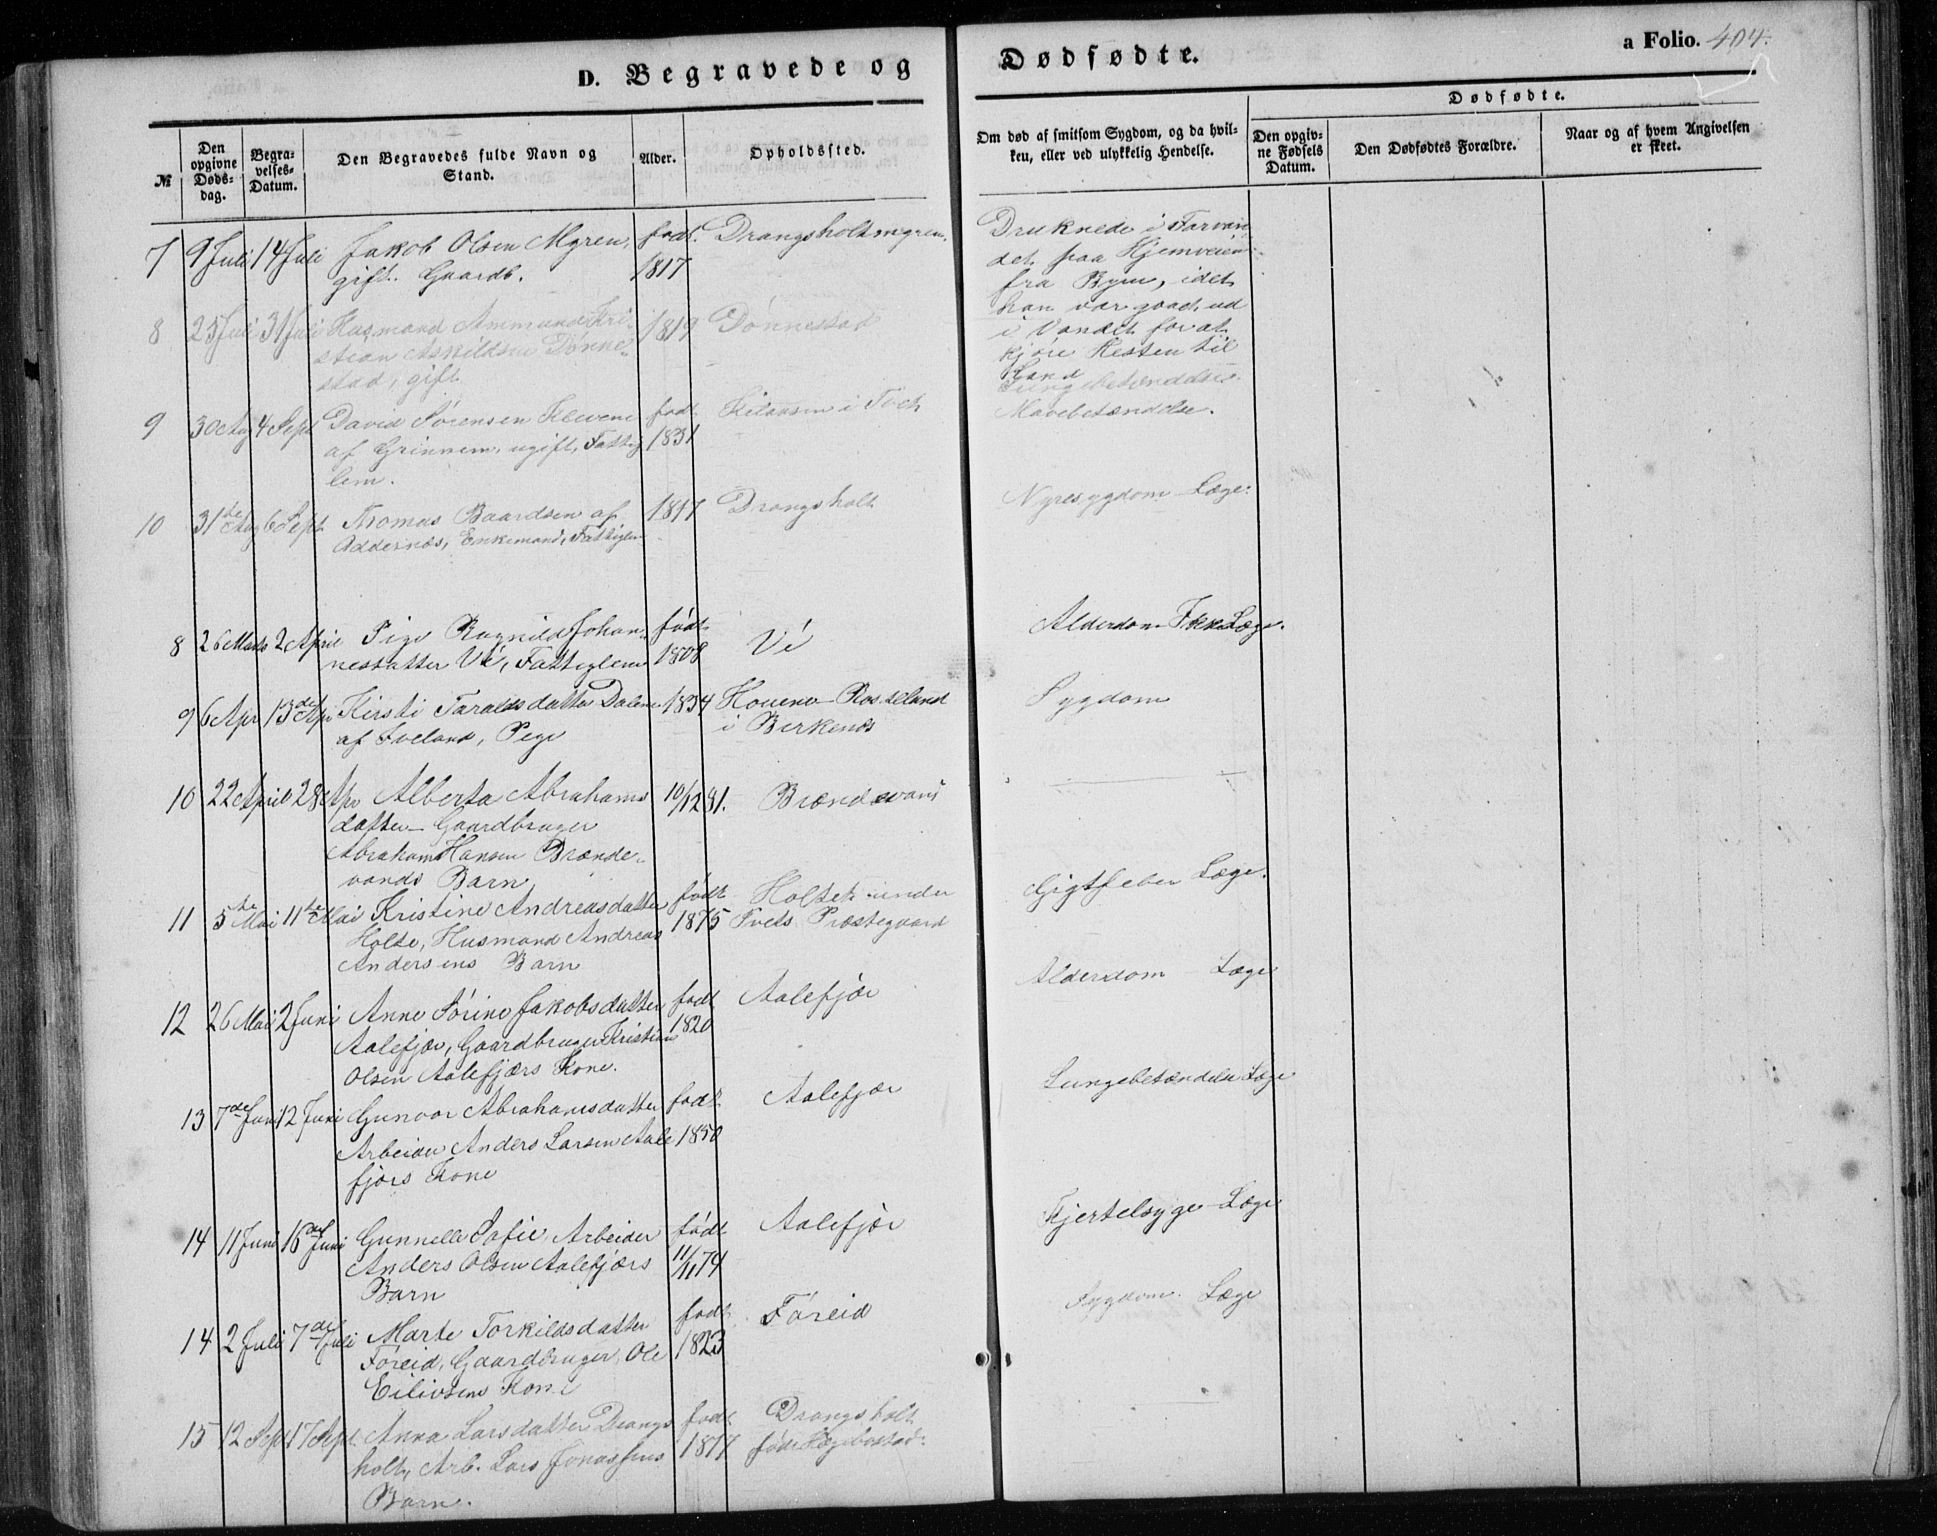 D. Begravede og Dødfødte.
a Folio. 404.
№
Den opgivne Døds-dag.
Begra-velses-Datum.
Den Begravedes fulde Navn og Stand.
Alder.
Opholdssted.
Om død af smitsom Sygdom, og da hvil-ken, eller ved ulykkelig Hendelse.
Dødfødte.
Den opgiv-ne Fødsels Datum.
Den Dødfødtes Forældre.
Naar og af hvem Angivelsen er skeet.
7 9 Juli 14 Juli Jakob Olsen Myren, født. Drangsholtmyren.
gift. Gaardb. 1817
Druknede i Farvan-
det paa Hjemveien
fra Byen, idet
han var gaaet ud
i Vandet for at
kjøre Hesten til
Land
8 25 Juli 31 Juli Husmand Ammund Kri- 1819 Dønnestad
stian Askildsen Dønne-
stad, gift
Lungebetændelse.
9 30 Aug 4 Sept David Sørensen Klevene født i Tvet Mavebetændelse.
af Grinnem, ugift, Fattig 1831
lem.
10 31te Aug 6 Sept Thomas Baardsen af 1817 Drangsholt Nyresygdom Læge.
Oddernæs, Enkemand, Fattiglem
8 26 Marts 2 April Pige Ragnild Johan- født Vé Alderdom Ikke Læge.
nesdatter Vé, Fattiglem 1808
9 6 Apr 13de Apr Kirsti Taraldsdatter Dalene 1834 Houene Rosseland Sygdom
af Iveland, Pige i Birkenes
10 22 April 28 Apr Alberta Abrahams 10/12 81. Brændevand
datter Gaardbruger
Abraham Hansen Brænde-
vands Barn
11 5te Mai 11te Mai Kristine Andreasdatter født Holtet under Gigtfeber Læge.
Holte, Husmand Andreas 1875 Tvets Præstegaard
Andersens Barn
12 26 Mai 2 Juni Anne Sørine Jakobsdatter født Aalefjær Alderdom Læge
Aalefjær, Gaardbruger Kristian 1820
Olsen Aalefjærs Kone.
13 7de Juni 12 Juni Gunvor Abrahamsdatter født Aalefjær Lungebetændelse Læge
Arbeider Anders Larsen Aale 1850
fjærs Kone
14 11 Juni 16de Juni Gunnella Sofie, Arbeider født Aalefjær Kjertelsyge Læge
Anders Olsen Aalefjærs 11/11 74
Barn
14 2 Juli 7de Juli Marte Torkildsdatter født Føreid Sygdom. Læge
Føreid, Gaardbruger Ole 1823
Eilivsens Kone
15 12 Sept 17 Sept. Anna Larsdatter Drangs født Drangsholt
holt, Arb. Lars Jonassens 1877 født Hægebostad
Barn.